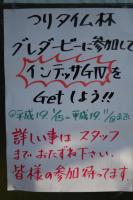 つりタイム杯
グレダービーに参加して
インテッサG.IVを
Getしよう!!
平成19 平成19 まで
詳しい事は スタッフ
まで おたずね下さい。
皆様の参加待ってます